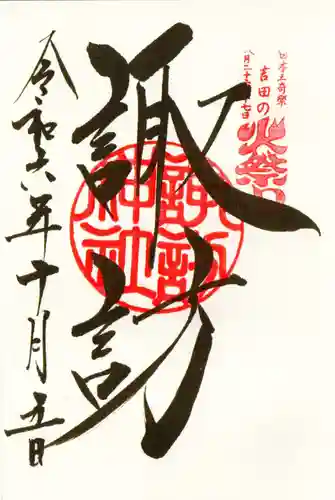 日本三奇祭
吉田の火祭り
八月二十六日二十七日
諏訪
諏訪神社
令和六年十月五日